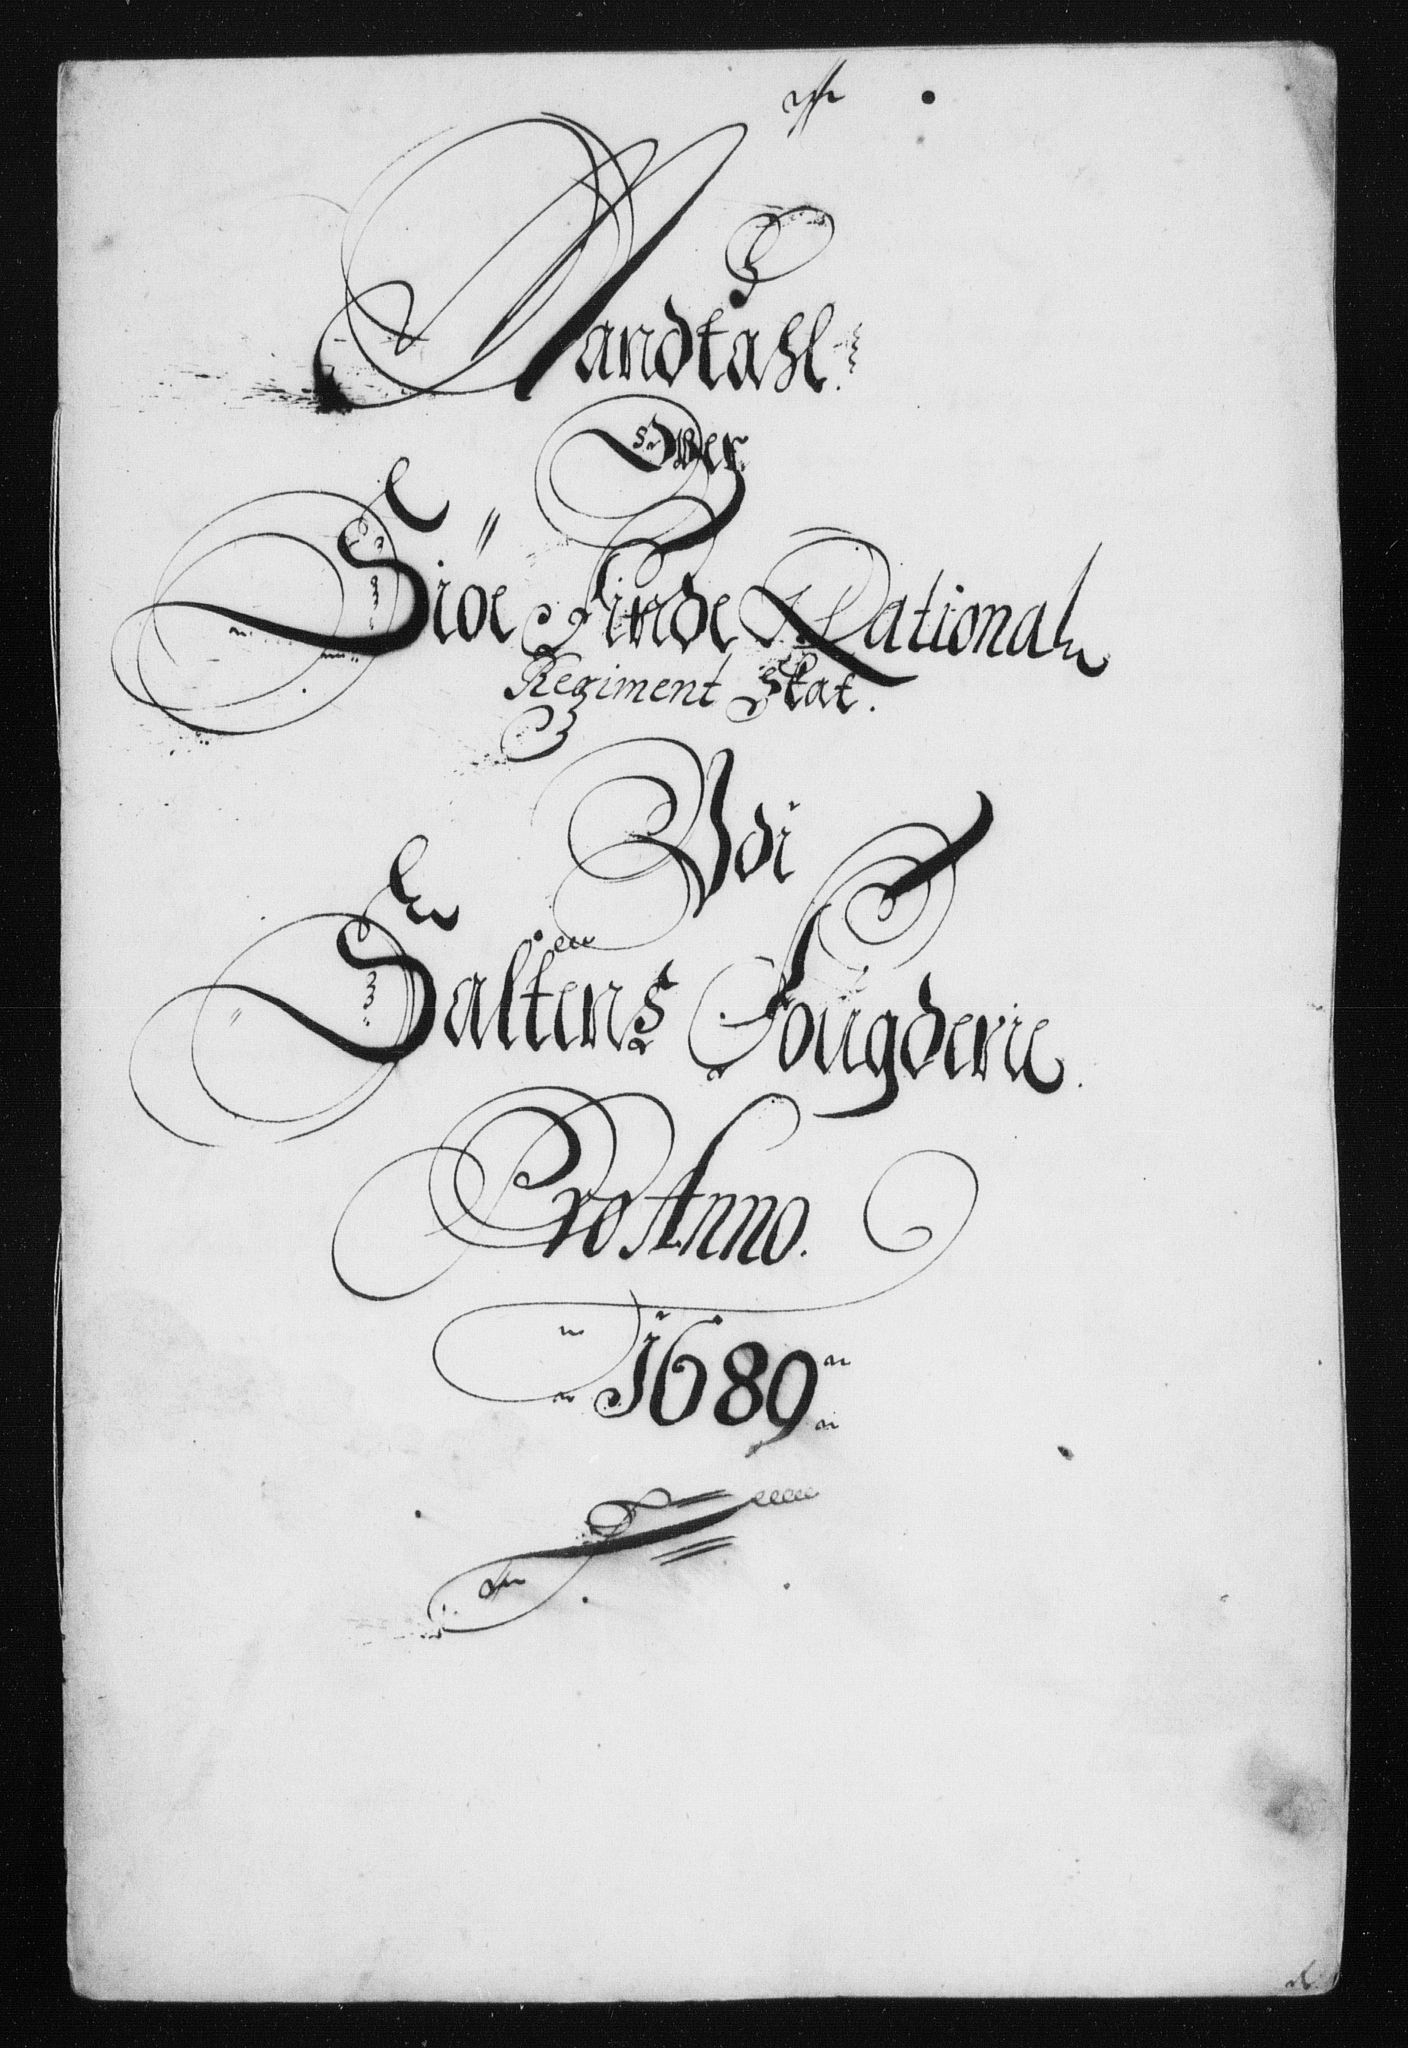 Mandtahl
Over
Siöe Finde National
Regiment Skat.
Vdi
Saltens Fougderie.
Pro Anno.
1689